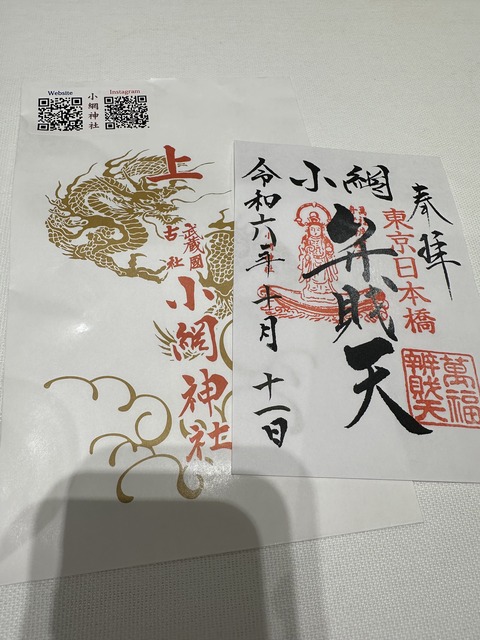 Website
Instagram
小網神社
上
武蔵國
古社
小網神社
奉拝
東京日本橋
小網
弁財天
萬福
辨財天
令和六年十月十一日